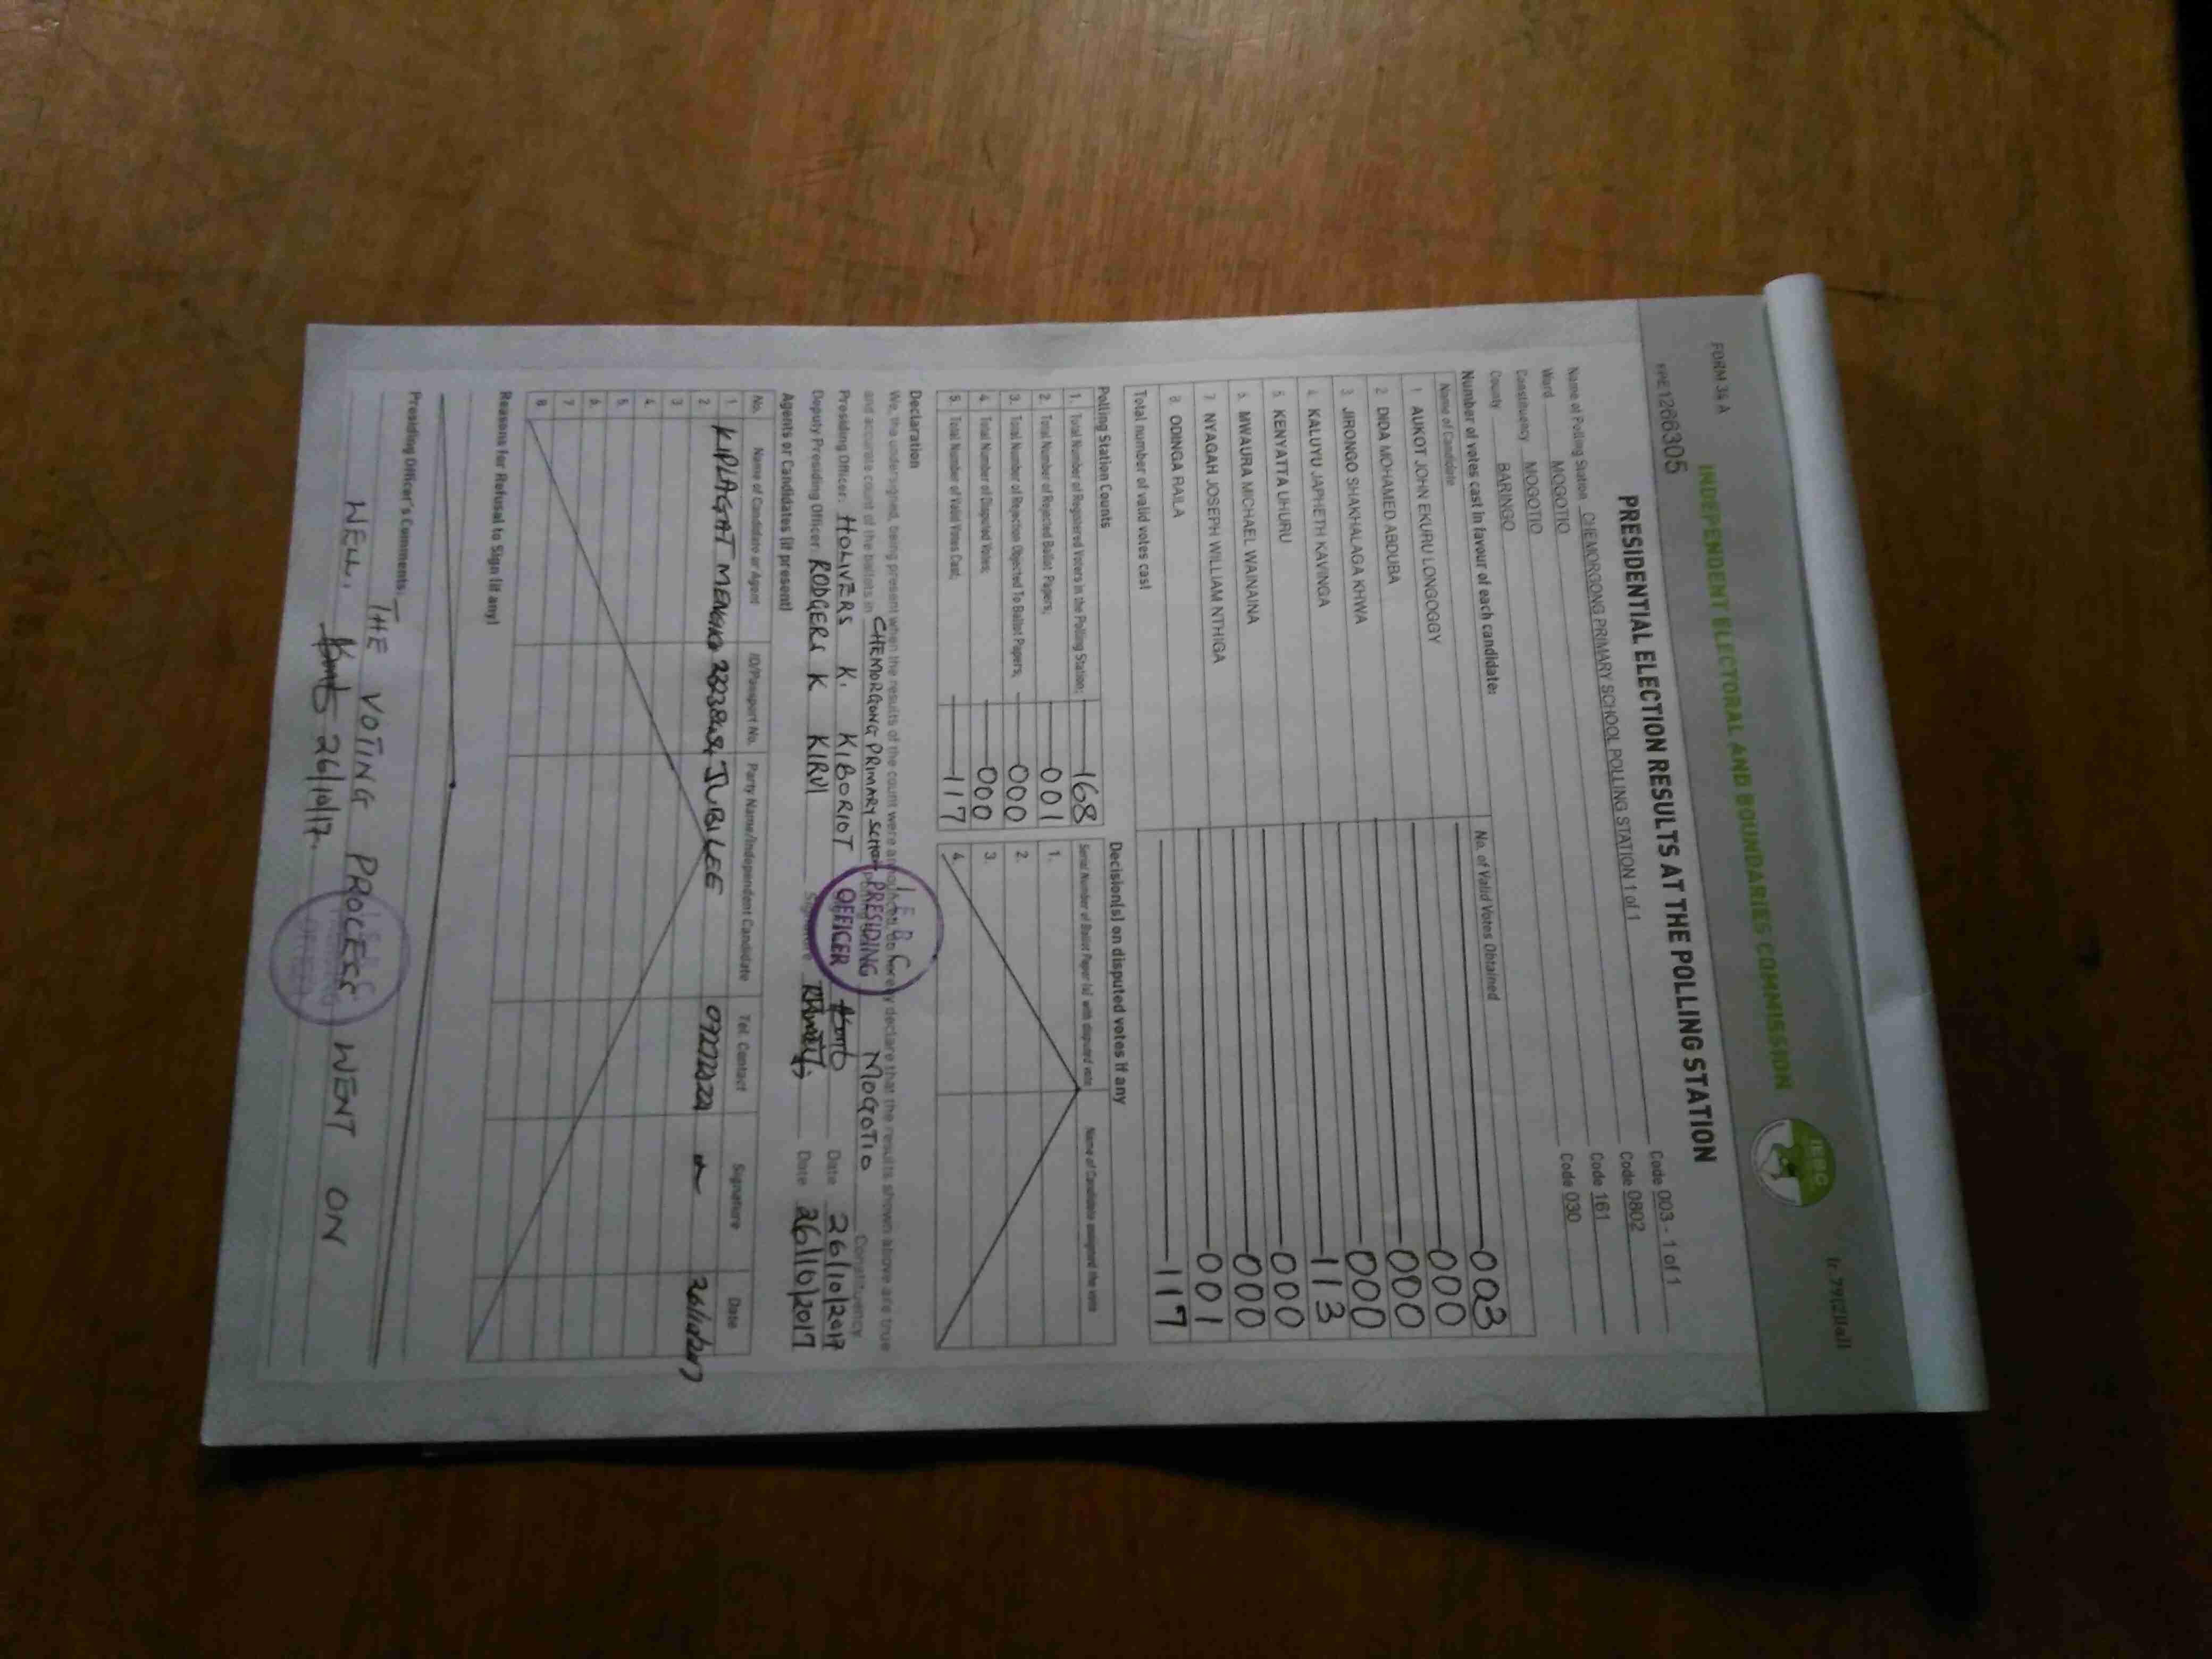 FORM 34 A
INDEPENDENT ELECTORAL AND BOUNDARIES COMMISSION
IEBC
(r.79(2)(a))
KPE1266305
PRESIDENTIAL ELECTION RESULTS AT THE POLLING STATION
Name of Polling Station CHEMORGONG PRIMARY SCHOOL POLLING STATION 1 of 1 Code 003 - 1 of 1
Ward MOGOTIO Code 0802
Constituency MOGOTIO Code 161
County BARINGO Code 030
Number of votes cast in favour of each candidate:
Name of Candidate No. of Valid Votes Obtained
1 AUKOT JOHN EKURU LONGOGGY 003
2 DIDA MOHAMED ABDUBA 000
3 JIRONGO SHAKHALAGA KHWA 000
4 KALUYU JAPHETH KAVINGA 000
5 KENYATTA UHURU 113
6 MWAURA MICHAEL WAINAINA 000
7 NYAGAH JOSEPH WILLIAM NTHIGA 000
8 ODINGA RAILA 001
Total number of valid votes cast 117
Polling Station Counts
1. Total Number of Registered Voters in the Polling Station; 168
2. Total Number of Rejected Ballot Papers; 001
3. Total Number of Rejection Objected To Ballot Papers; 000
4. Total Number of Disputed Votes; 000
5. Total Number of Valid Votes Cast; 117
Decision(s) on disputed votes if any
Serial Number of Ballot Paper (s) with disputed vote Name of Candidate assigned the vote
1.
2.
3.
4.
Declaration
We, the undersigned, being present when the results of the count were announced, do hereby declare that the results shown above are true
and accurate count of the ballots in CHEMORGONG PRIMARY SCHOOL MOGOTIO Constituency
Presiding Officer: HOLIVERS K. KIBORIOT Date 26/10/2017
Deputy Presiding Officer RODGERS K KIRUI Signature Date 26/10/2017
I.E.B.C
PRESIDING
OFFICER
Agents or Candidates (if present)
No. Name of Candidate or Agent ID/Passport No. Party Name/Independent Candidate Tel. Contact Signature Date
1 KIPLAGAT JUBILEE
2
3
4.
5.
6.
7
8.
Reasons for Refusal to Sign (if any)
Presiding Officer's Comments:
THE VOTING PROCESS WENT ON
WELL. 26/10/17.